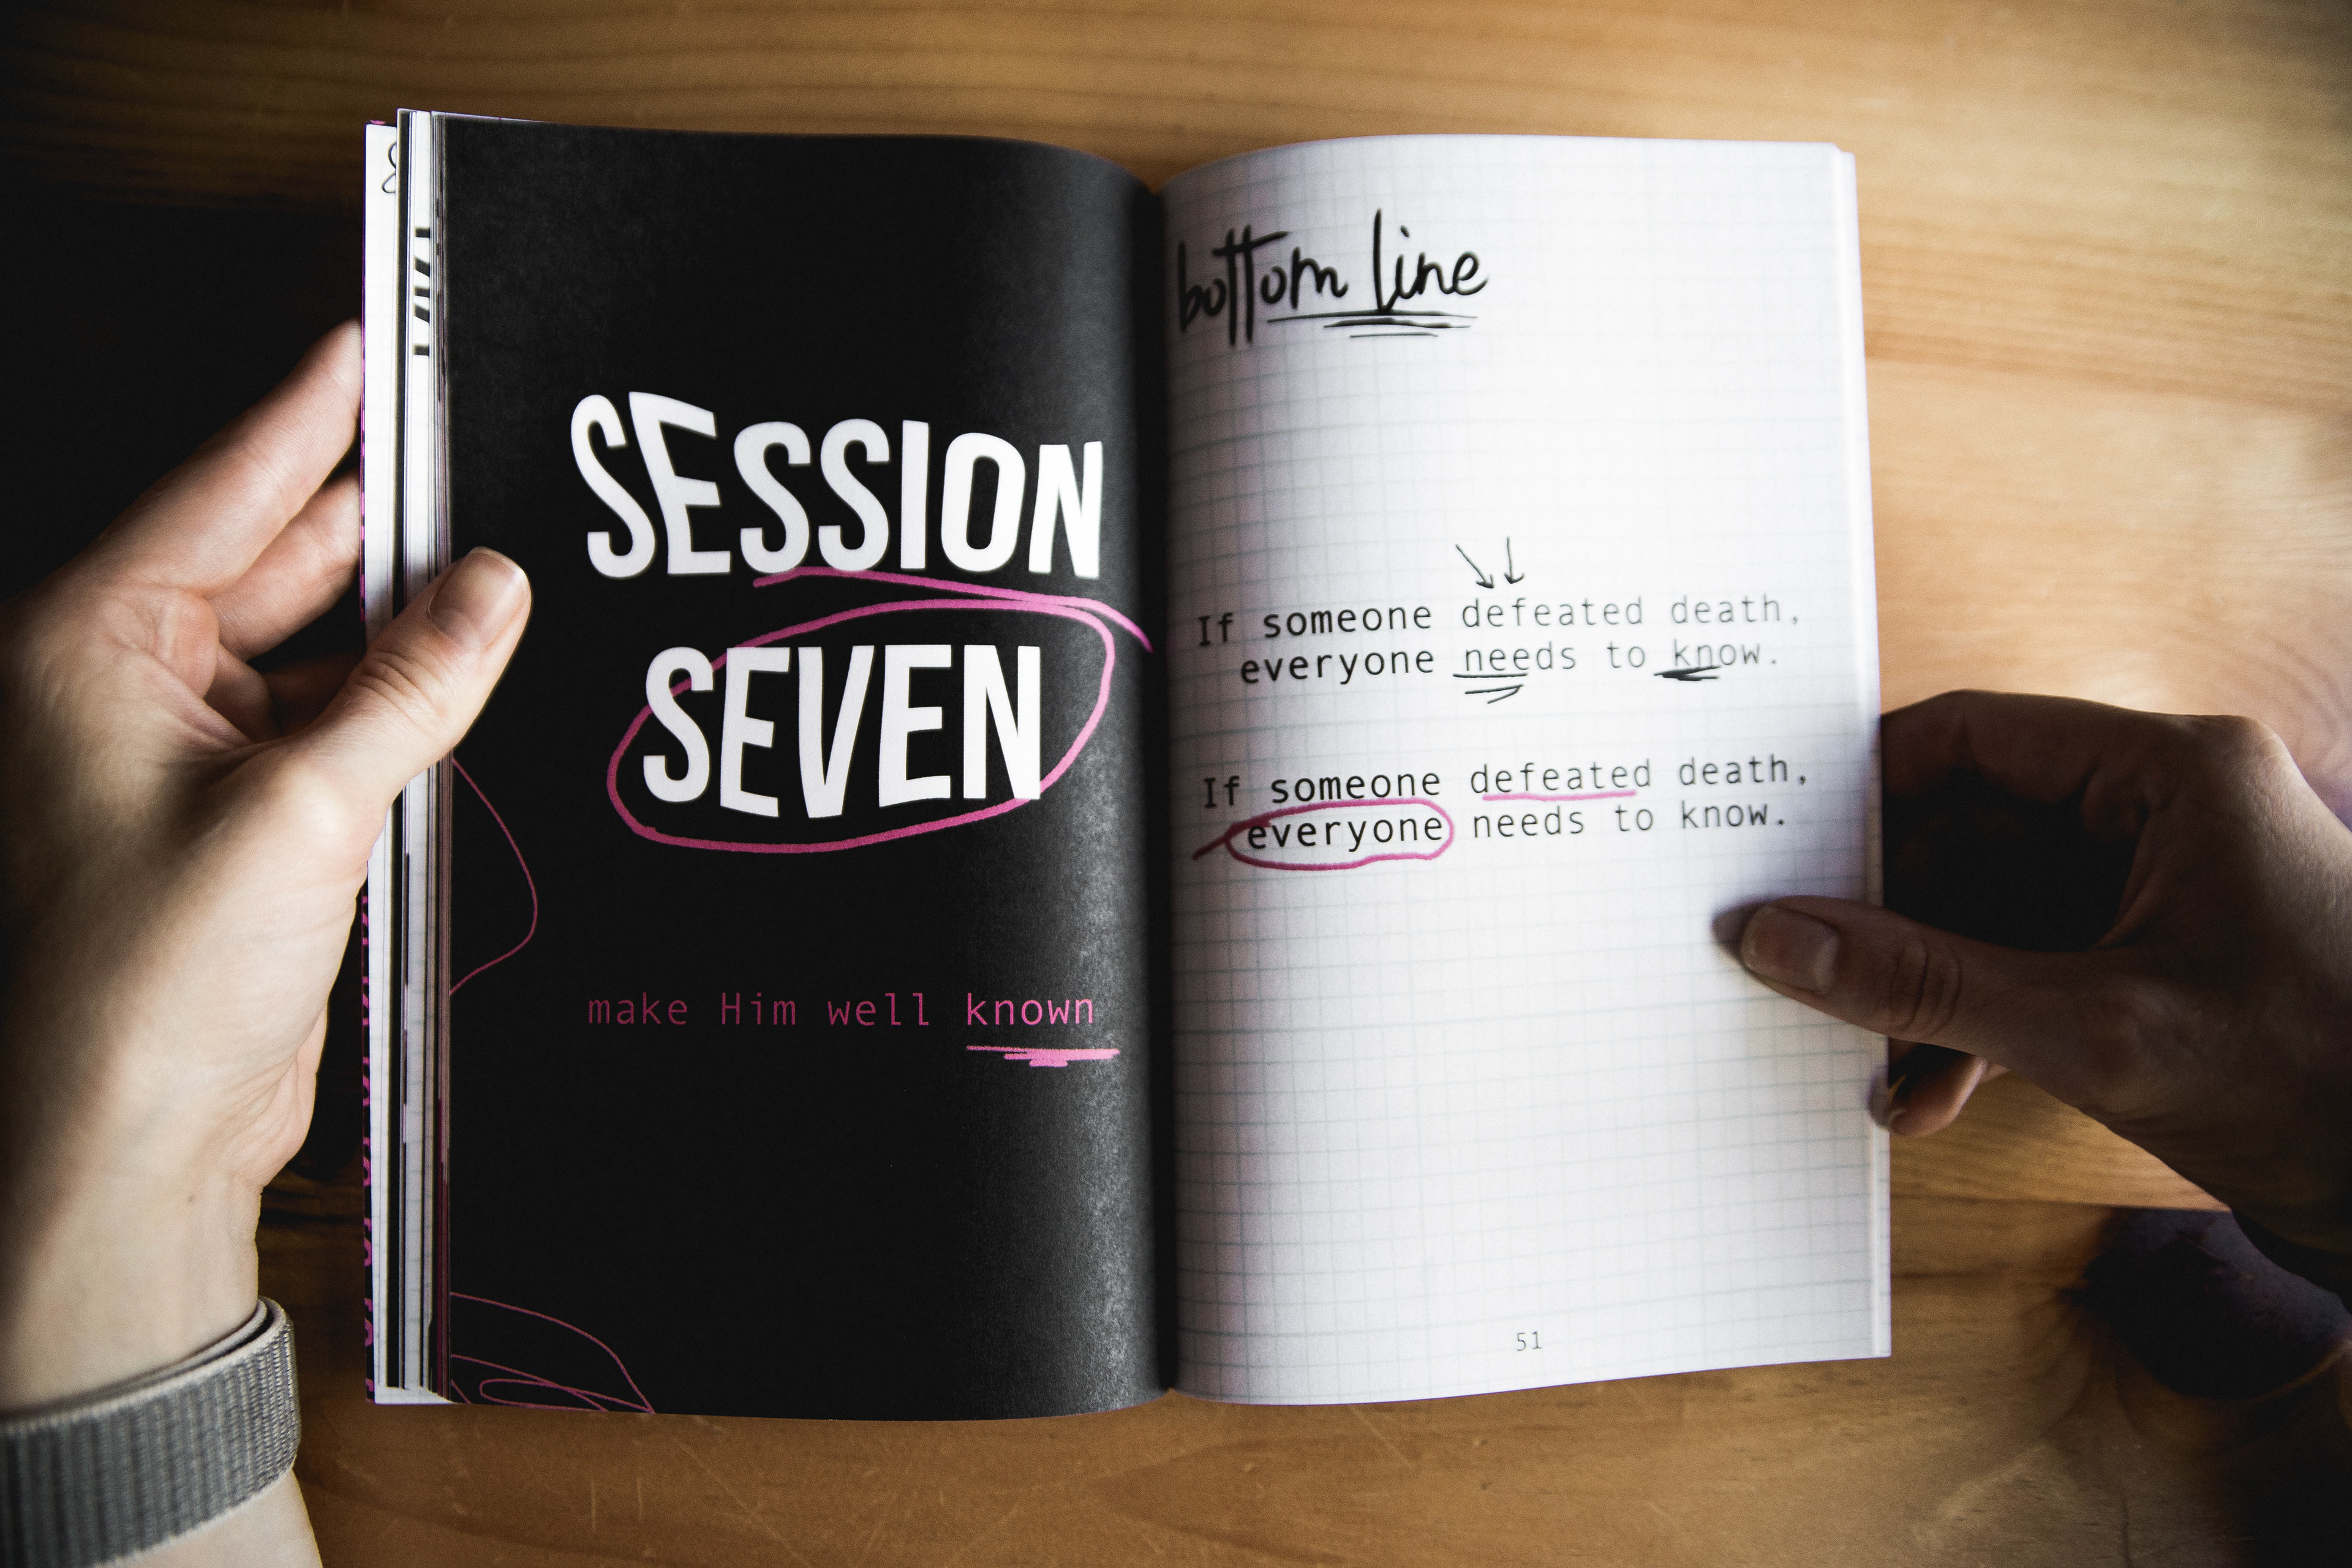 SESSION
SEVEN
make Him well known
bottom line
If someone defeated death,
everyone needs to know.
If someone defeated death,
everyone needs to know.
51